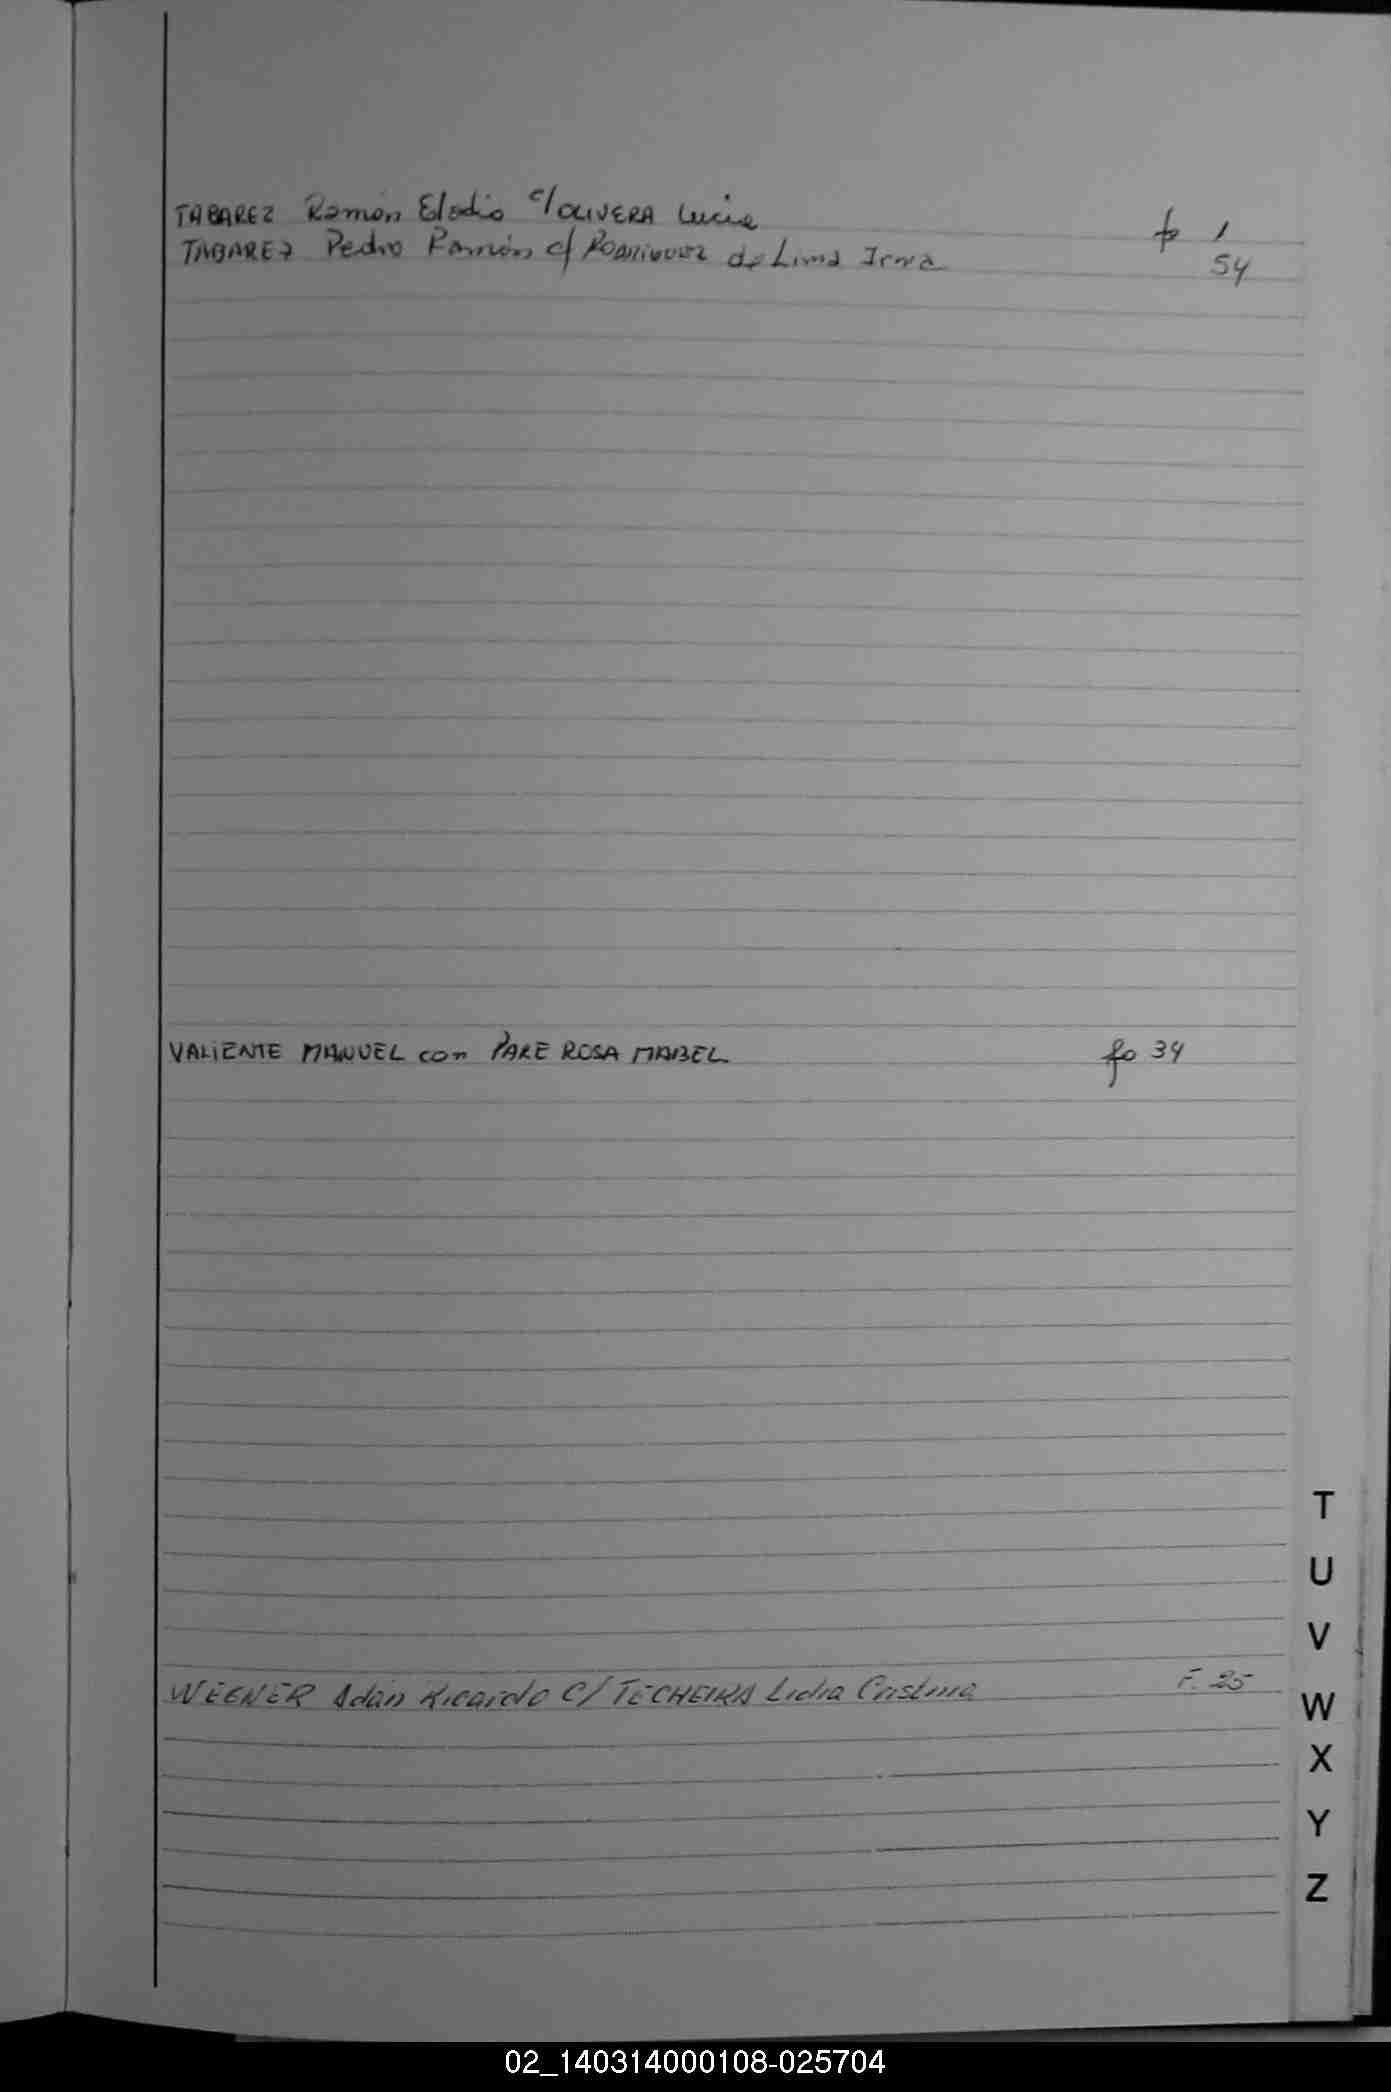 TABAREZ Ramón Eladio c/ OLIVERA Lucia fo 1
TABAREZ Pedro Ramón c/ RODRIGUEZ de Lima Irma 54
VALIENTE MANUEL con PARE ROSA MABEL fo 34
WEGNER Adán Ricardo C/ TECHEIRA Lidia Cristina F. 25
T
U
V
W
X
Y
Z
02_140314000108-025704